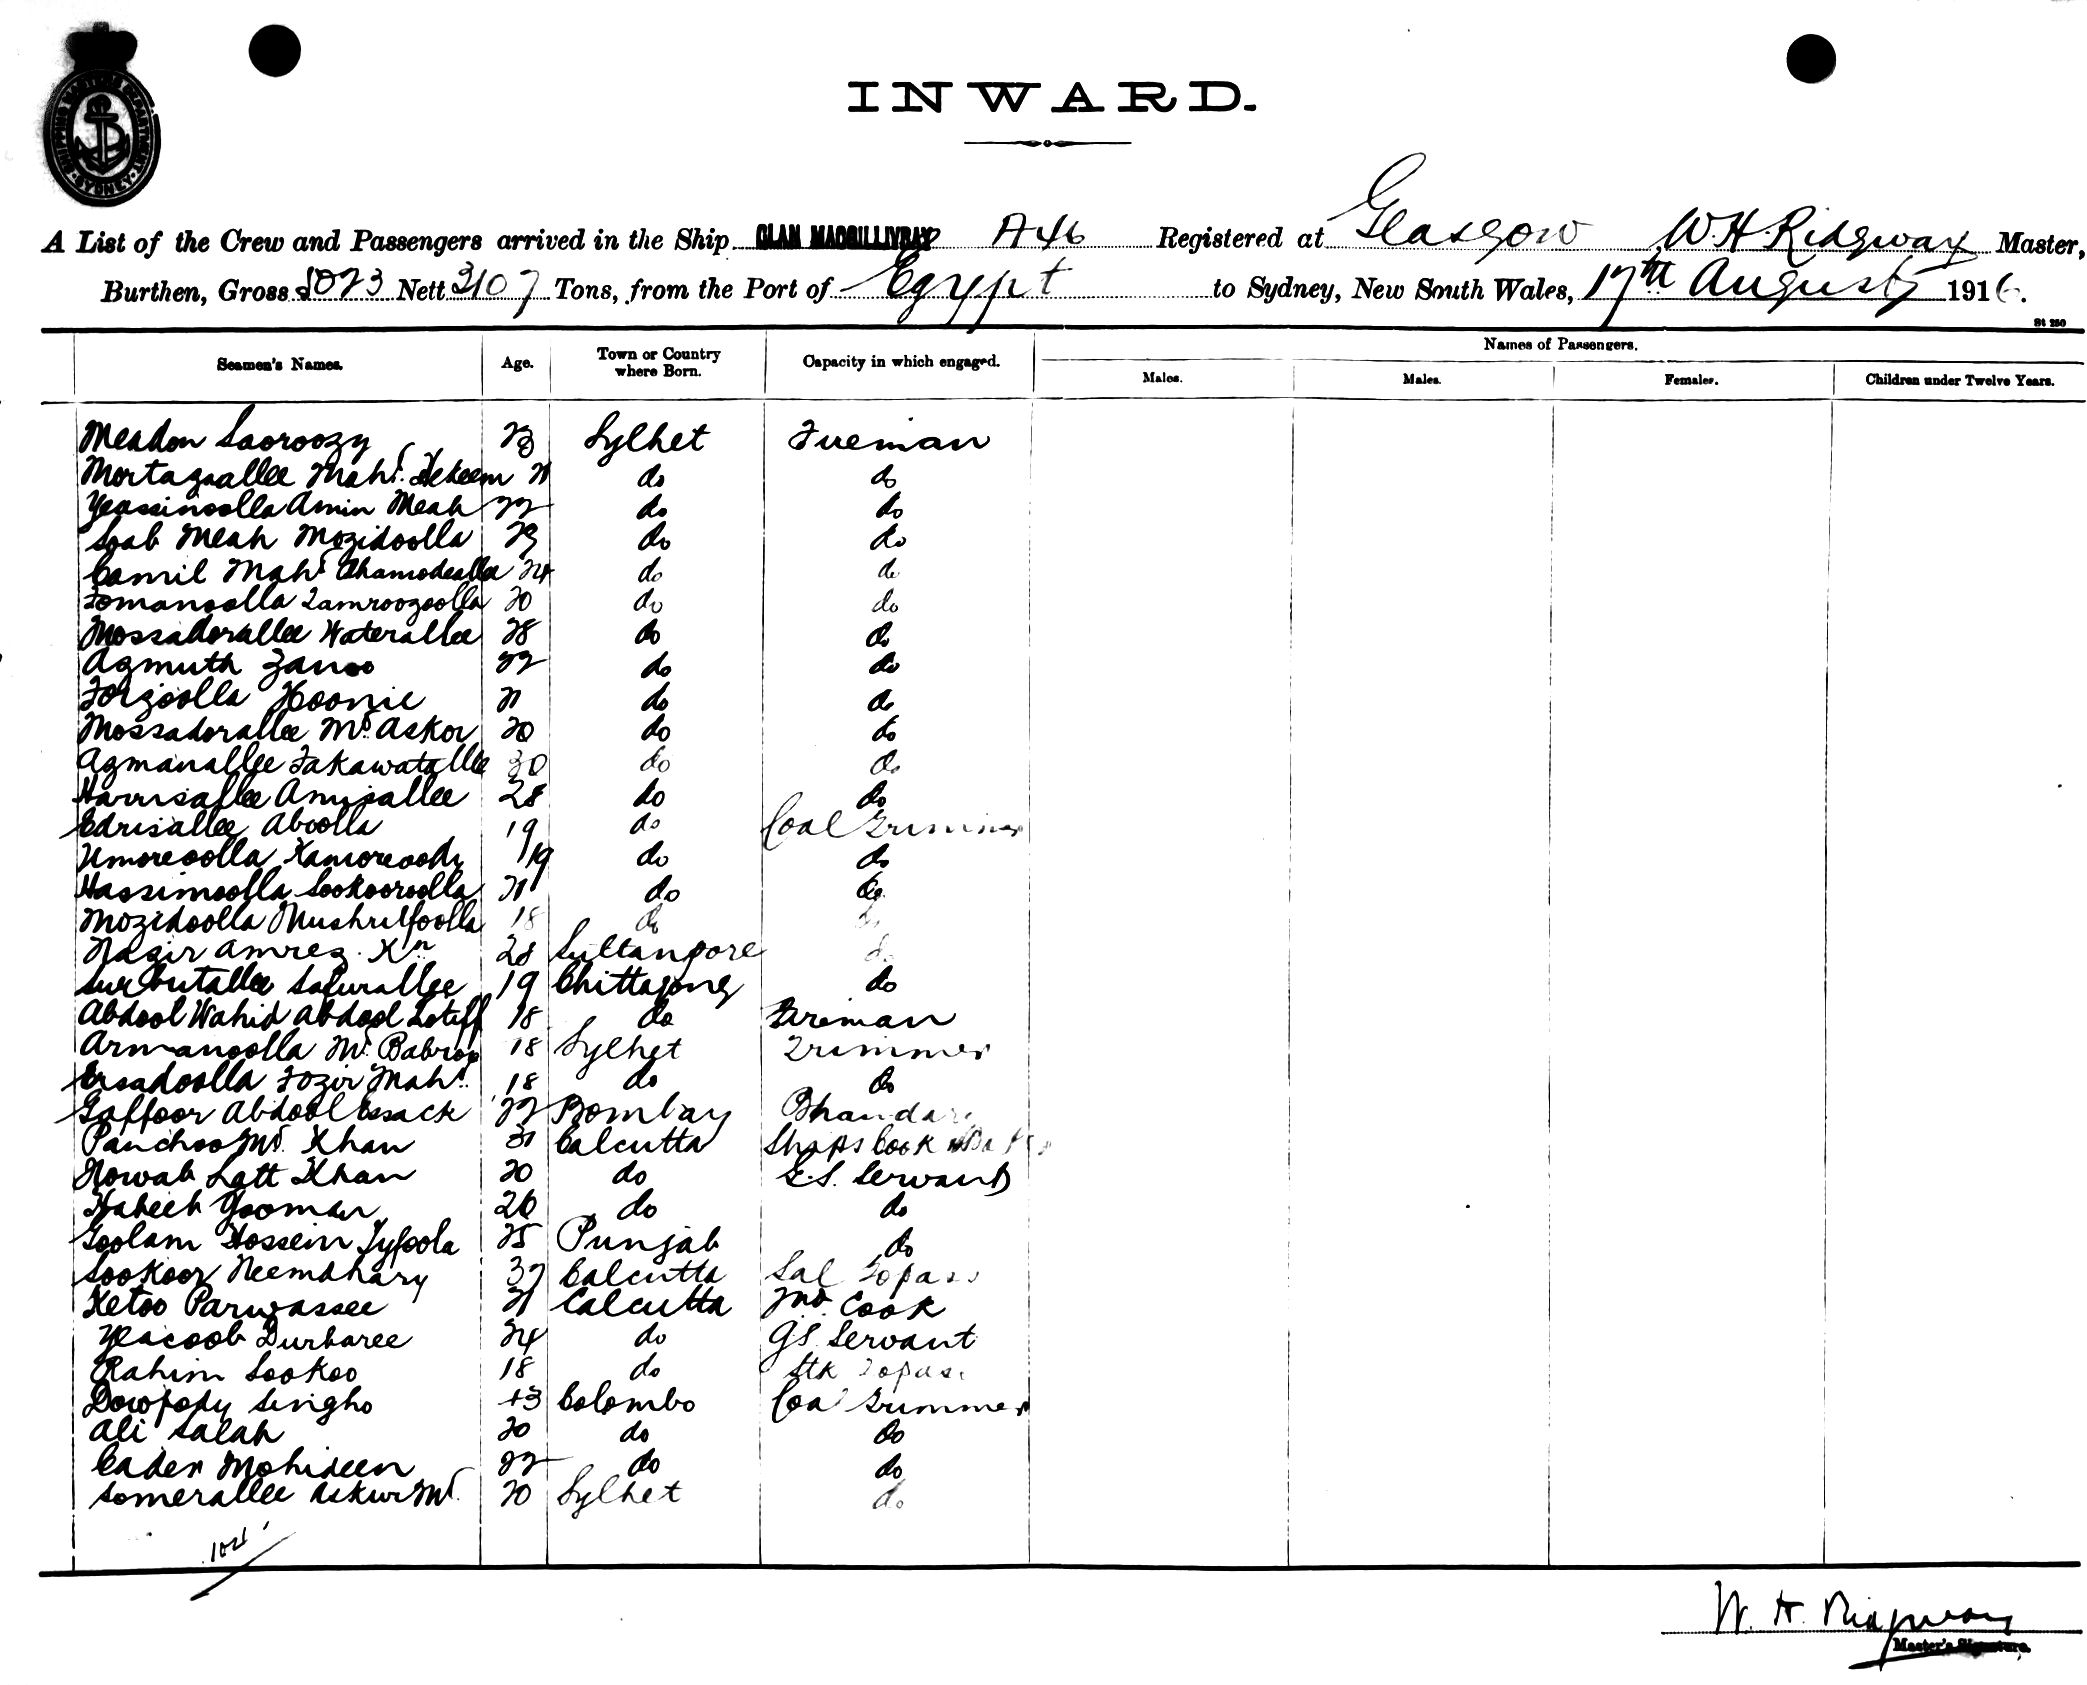 SHIPPING MASTER'S DEPARTMENT
SYDNEY
INWARD.
A List of the Crew and Passengers arrived in the Ship CLAN MACGILLIVRAY A46 Registered at Glasgow W.H. Ridgway Master,
Burthen, Gross 5023 Nett 3107 Tons, from the Port of Egypt to Sydney, New South Wales, 17th August 1916.
St 250
Seamen's Names. Age. Town or Country where Born. Capacity in which engaged. Names of Passengers.
Males. Males. Females. Children under Twelve Years.
Meadon Sooroozy 23 Sylhet Fireman
Mortazaallee Mahd. 21 do do
Yeassinoolla Amin Meah 22 do do
Soab Meah Mozidoolla 29 do do
Camil Mahd 24 do do
Tomanoolla Tamroozoolla 20 do do
Mossadorallee Waterallee 28 do do
Azmuth Zanoo 22 do do
Forzoolla Hoonie 21 do do
Mossadorallee Md. Askor 20 do do
Azmanallee Fakawatallee 30 do do
Harrisallee Amjsallee 28 do do
Edrisallee Aboolla 19 do Coal Trimmer
Umoreoolla Kamoreoody 19 do do
Hassimoolla Sookooroolla 21 do do
Mozidoolla Mushrufoolla 18 do do
Nazir Amrez Kn 28 Sultanpore do
Surbutallee Safurallee 19 Chittagong do
Abdool Wahid Abdool Loteff 18 do Fireman
Armanoolla Md. 18 Sylhet Trimmer
Ersadoolla Fozir Mahd. 18 do do
Goffoor Abdool Essack 22 Bombay Bhandary
Panchoo Md. Khan 31 Calcutta Ships Cook
Nowab Latt Khan 20 do E.S. Servant
Habeeb Yooman 26 do do
Goolam Hossein Tyfoola 25 Punjab do
Sookoor Neemdhary 37 Calcutta Sal Topass
Ketoo Parwassee 21 Calcutta 2nd. Cook
Yeacoob Durbaree 24 do G.S. Servant
Rahim Sookoo 18 do Stk Topass
Singho 43 Colombo Coal Trimmer
Ali Salah 20 do do
Cader Mohideen 22 do do
Somerallee Askur Md. 20 Sylhet do
W. H. Ridgway
Master's Signature.